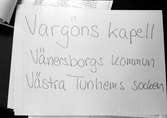 Vargöns kapell
Vänersborgs kommun
Västra Tunhems socken